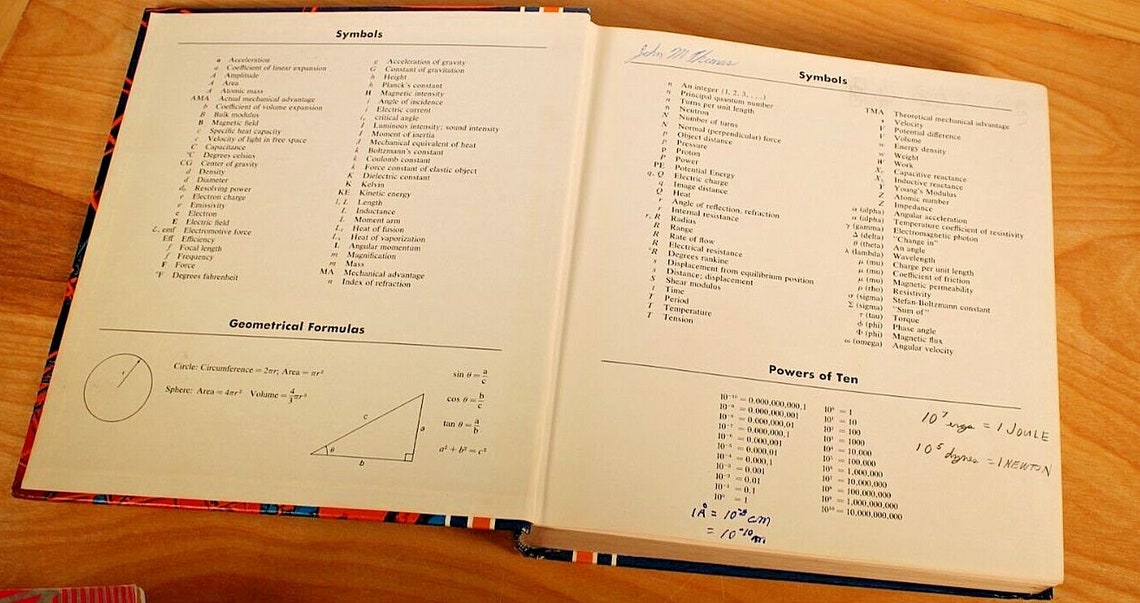 Symbols
a Acceleration
a Coefficient of linear expansion
A Amplitude
A Area
A Atomic mass
AMA Actual mechanical advantage
b Coefficient of volume expansion
B Bulk modulus
B Magnetic field
c Specific heat capacity
c Velocity of light in free space
C Capacitance
°C Degrees celsius
CG Center of gravity
d Density
d Diameter
d₀ Resolving power
e Electron charge
e Emissivity
e Electron
E Electric field
ℰ, emf Electromotive force
Eff Efficiency
f Focal length
f Frequency
F Force
°F Degrees fahrenheit
g Acceleration of gravity
G Constant of gravitation
h Height
h Planck's constant
H Magnetic intensity
i Angle of incidence
i Electric current
critical angle
I Luminous intensity; sound intensity
I Moment of inertia
J Mechanical equivalent of heat
k Boltzmann's constant
k Coulomb constant
k Force constant of elastic object
K Dielectric constant
K Kelvin
KE Kinetic energy
l, L Length
L Inductance
L Moment arm
Heat of fusion
Heat of vaporization
L Angular momentum
m Magnification
m Mass
MA Mechanical advantage
n Index of refraction
Geometrical Formulas
Circle: Circumference = 2πr; Area = πr²
Sphere: Area = 4πr² Volume = 4/3 πr³
r
c
a
θ
b
sin θ = a/c
cos θ = b/c
tan θ = a/b
a² + b² = c²
John M
Symbols
n An integer (1, 2, 3, . . .)
n Principal quantum number
n Turns per unit length
n Neutron
N Number of turns
N Normal (perpendicular) force
p Object distance
p Pressure
p Proton
P Power
PE Potential Energy
q, Q Electric charge
q Image distance
Q Heat
r Angle of reflection, refraction
r Internal resistance
r, R Radius
R Range
R Rate of flow
R Electrical resistance
°R Degrees rankine
s Displacement from equilibrium position
s Distance; displacement
S Shear modulus
t Time
T Period
T Temperature
T Tension
TMA Theoretical mechanical advantage
v Velocity
V Potential difference
V Volume
w Energy density
w Weight
W Work
Capacitive reactance
Inductive reactance
Y Young's Modulus
Z Atomic number
Z Impedance
α (alpha) Angular acceleration
α (alpha) Temperature coefficient of resistivity
γ (gamma) Electromagnetic photon
Δ (delta) "Change in"
θ (theta) An angle
λ (lambda) Wavelength
μ (mu) Charge per unit length
μ (mu) Coefficient of friction
μ (mu) Magnetic permeability
ρ (rho) Resistivity
σ (sigma) Stefan-Boltzmann constant
Σ (sigma) "Sum of"
τ (tau) Torque
φ (phi) Phase angle
Φ (phi) Magnetic flux
ω (omega) Angular velocity
Powers of Ten
10⁻¹⁰ = 0.000,000,000,1
10⁻⁹ = 0.000,000,001
10⁻⁸ = 0.000,000,01
10⁻⁷ = 0.000,000,1
10⁻⁶ = 0.000,001
10⁻⁵ = 0.000,01
10⁻⁴ = 0.000,1
10⁻³ = 0.001
10⁻² = 0.01
10⁻¹ = 0.1
10⁰ = 1
10⁰ = 1
10¹ = 10
10² = 100
10³ = 1000
10⁴ = 10,000
10⁵ = 100,000
10⁶ = 1,000,000
10⁷ = 10,000,000
10⁸ = 100,000,000
10⁹ = 1,000,000,000
10¹⁰ = 10,000,000,000
10⁷ ergs = 1 JOULE
10⁵ dynes = 1 NEWTON
1Å = 10⁻⁸ cm
= 10⁻¹⁰ m